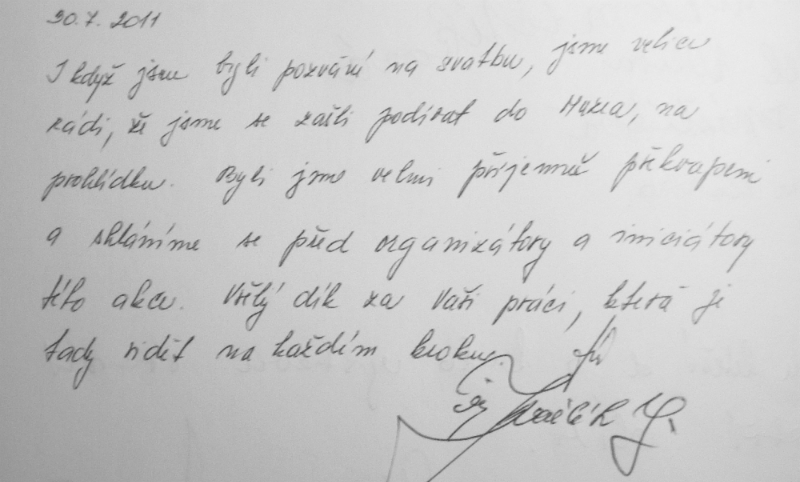 30.7.2011
I když jsme byli pozváni na svatbu, jsme velice
rádi, že jsme se zašli podívat do Muzea, na
prohlídku. Byli jsme velmi příjemně překvapeni
a skláníme se před organizátory a iniciátory
této akce. Vřelý dík za Vaši práci, která je
tady vidět na každém kroku.